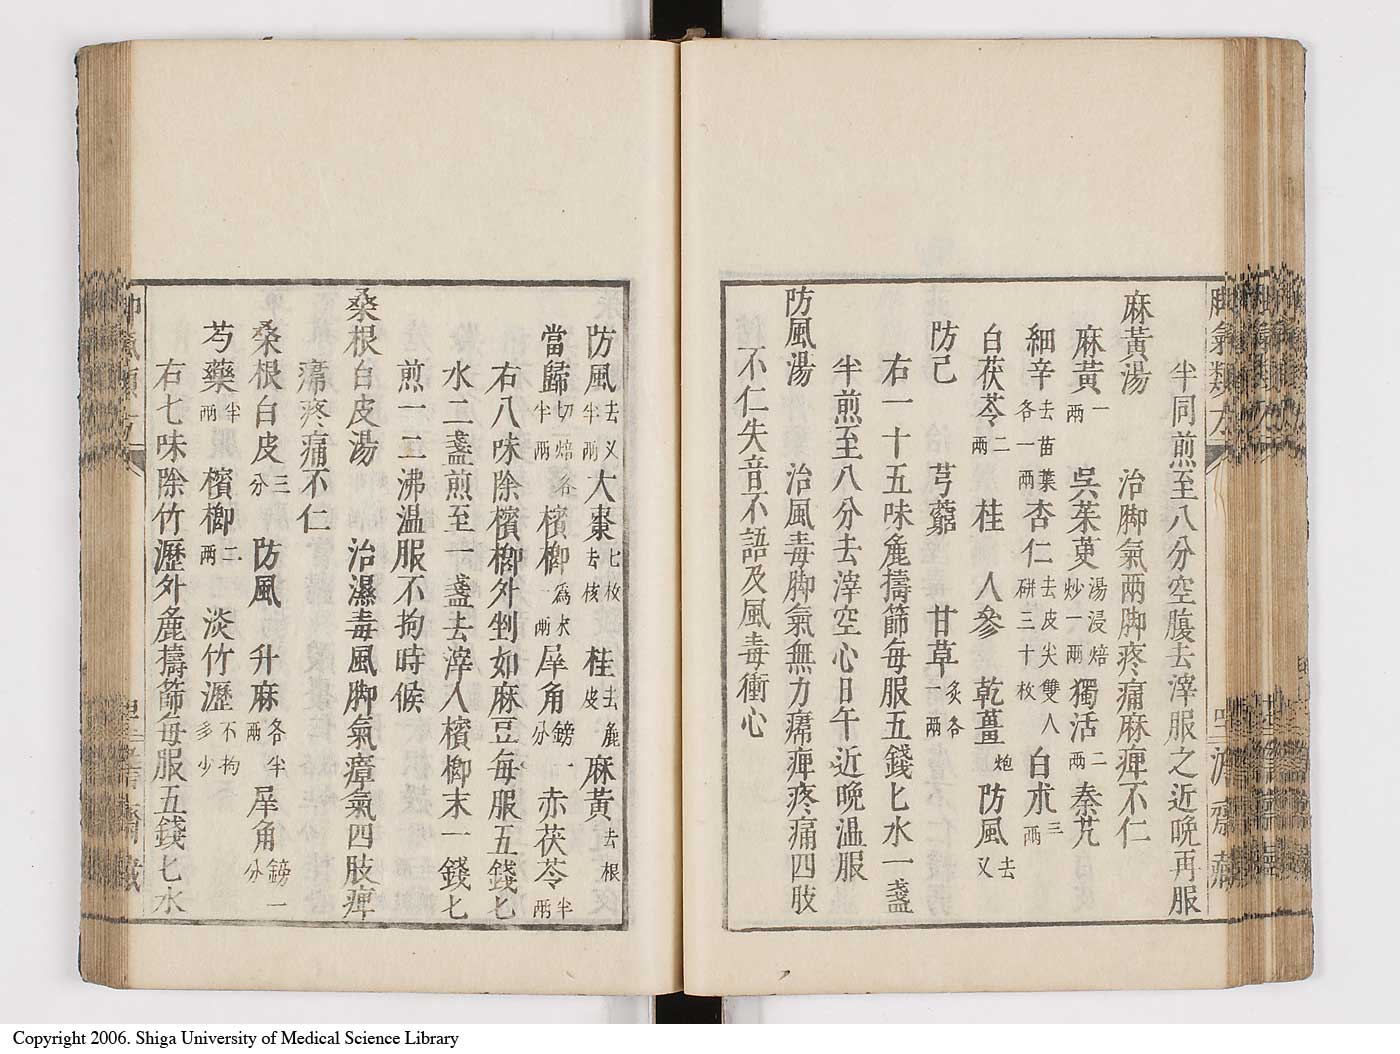 半同煎至八分空腹去滓服之近晩再服
麻黃湯　治脚氣兩脚疼痛麻痺不仁
麻黃一兩　吳茱萸湯浸焙炒一兩　獨活二兩　秦艽
細辛去苗葉各一兩　杏仁去皮尖雙人硏三十枚　白朮三兩
白茯苓二兩　桂　人參　乾薑炮　防風去义
防己　芎藭　甘草炙各一兩
右一十五味麁擣篩每服五錢匕水一盞
半煎至八分去滓空心日午近晩温服
防風湯　治風毒脚氣無力㿏痺疼痛四肢
不仁失音不語及風毒衝心
防風去义半兩　大棗七枚去核　桂去麁皮　麻黃去根
當歸切焙各半兩　檳榔爲末一兩　犀角鎊一分　赤茯苓半兩
右八味除檳榔外剉如麻豆每服五錢匕
水二盞煎至一盞去滓入檳榔末一錢匕
煎一二沸温服不拘時候
桑根白皮湯　治濕毒風脚氣瘴氣四肢痺
㿏疼痛不仁
桑根白皮三分　防風　升麻各半兩　犀角鎊一分
芍藥半兩　檳榔二兩　淡竹瀝不拘多少
右七味除竹瀝外麁擣篩每服五錢匕水
脚氣類方
Copyright 2006. Shiga University of Medical Science Library